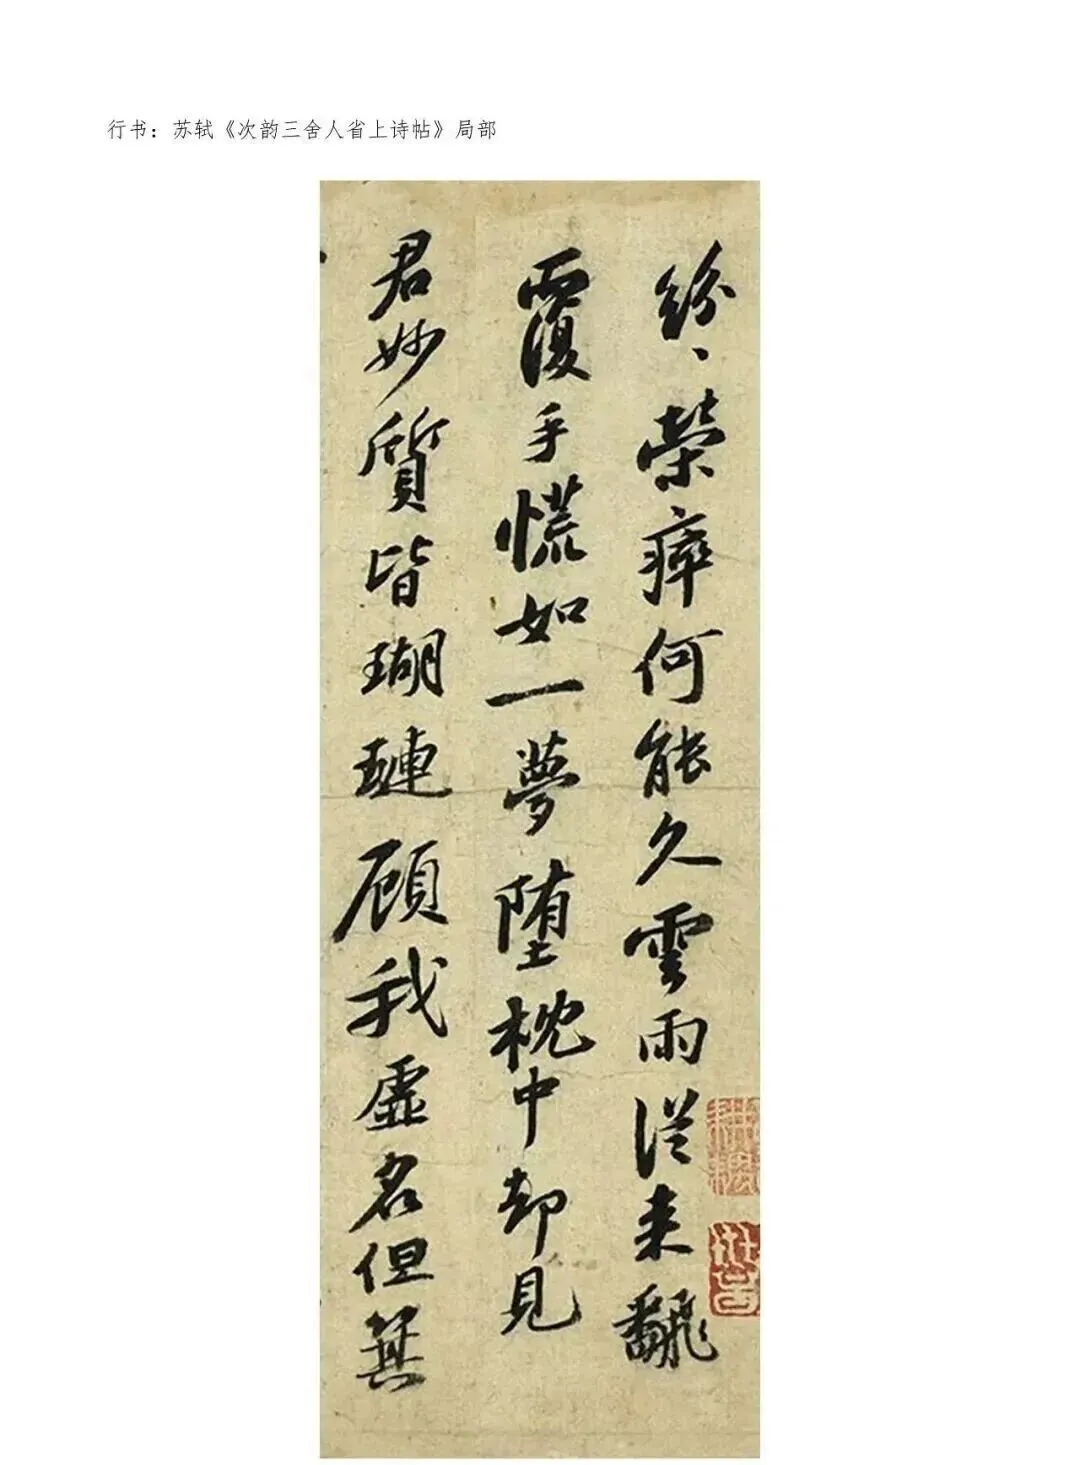 行书：苏轼《次韵三舍人省上诗帖》局部
纷、荣瘁何能久雲雨從来飜
覆手慌如一夢堕枕中却見
君妙質皆瑚璉顧我虚名但箕